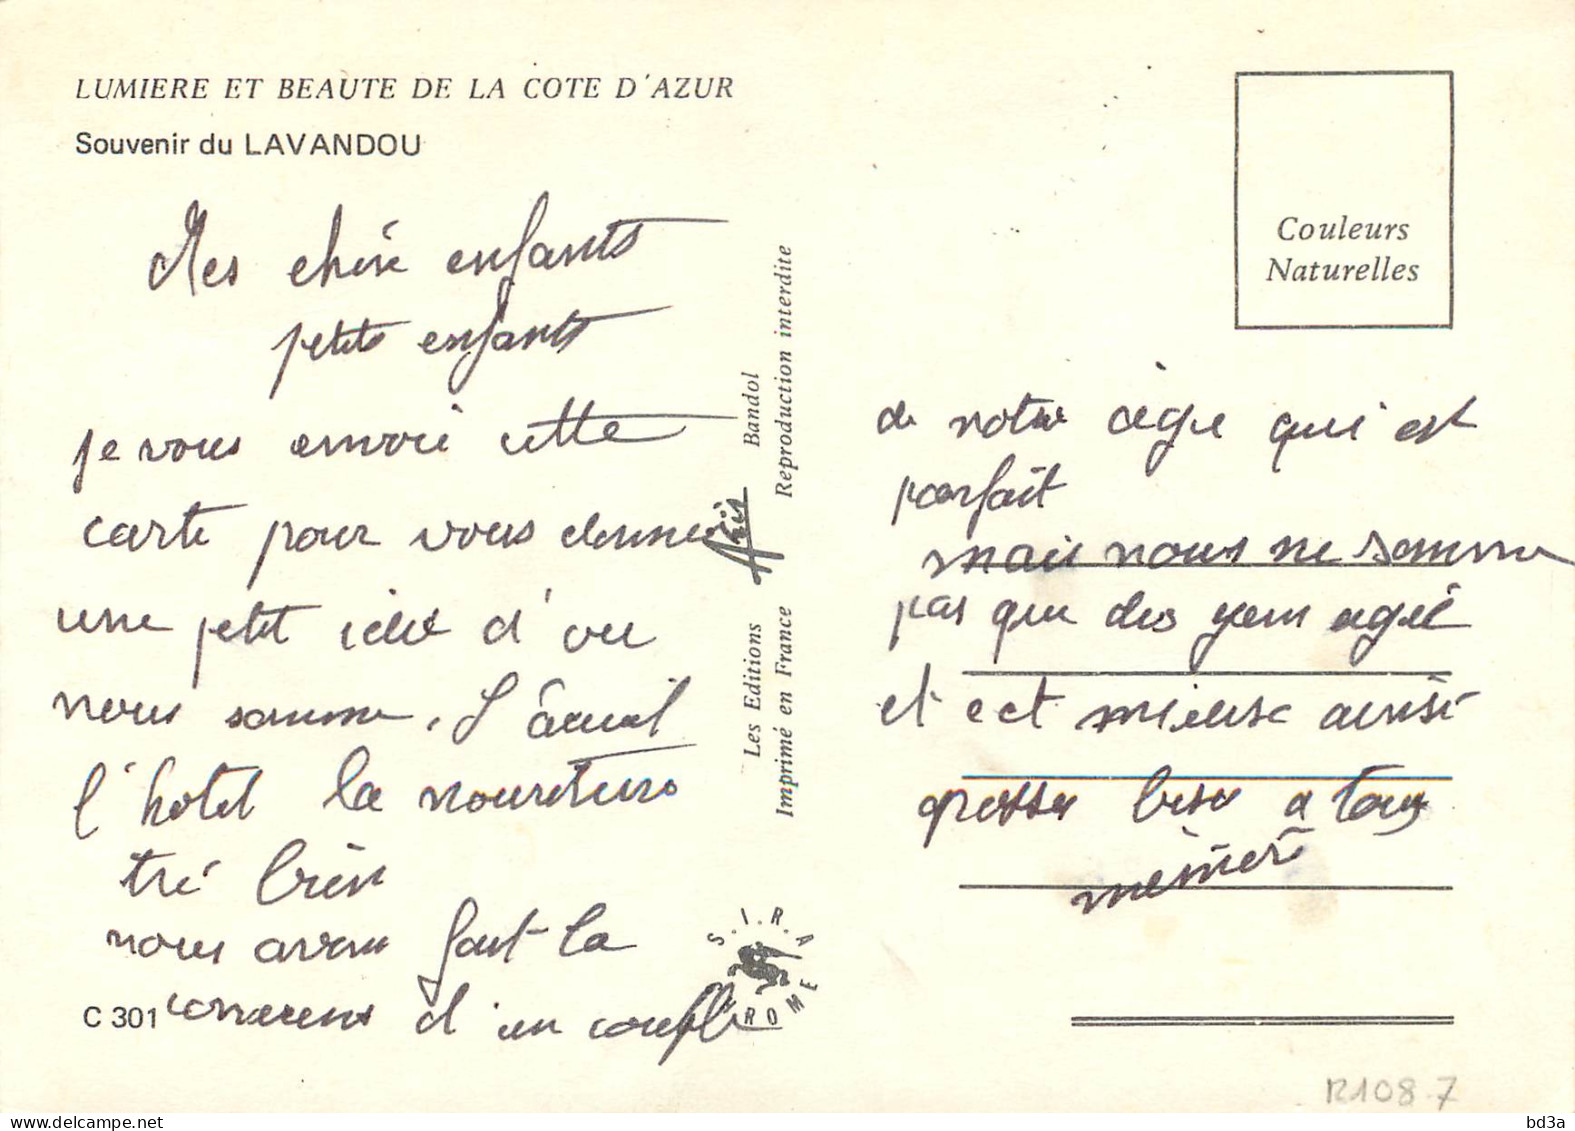 LUMIERE ET BEAUTE DE LA COTE D'AZUR
Souvenir du LAVANDOU
Mes chère enfants
petits enfants
je vous envoie cette
carte pour vous donner
une petit idée d'ou
nous somme. L'acueil
l'hotel la nouriture
tré bien
nous avons fait la
connaissens d'un couple
C 301
Les Editions Aris Bandol
Imprimé en France Reproduction interdite
S.I.R.A
ROME
Couleurs
Naturelles
de notre age qui est
parfait
mais nous ne somme
pas que des gens agée
et cet mieux ainsi
grosses bises a tous
mémère
R108.7
bd3a